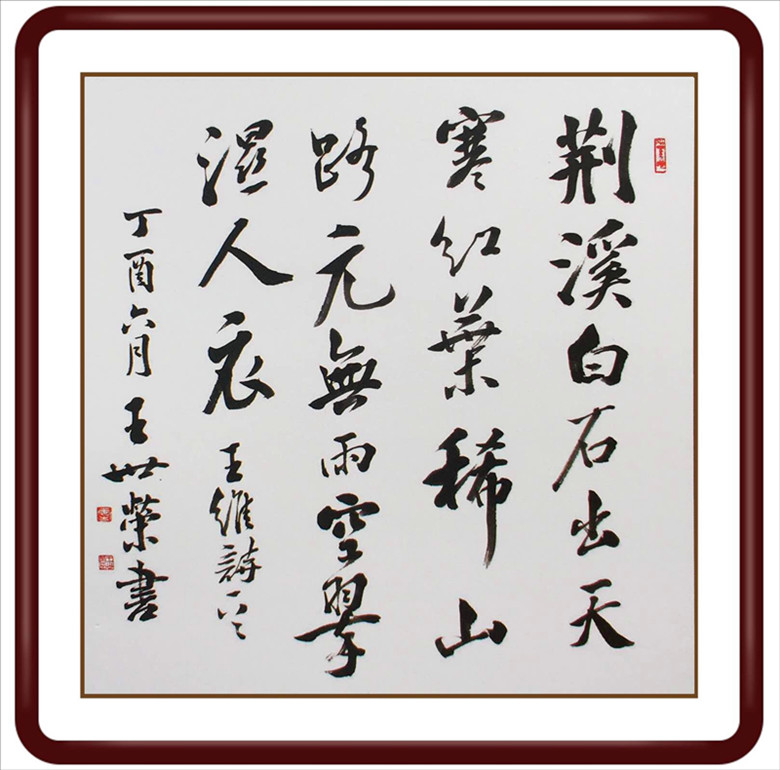 荆溪白石出天
寒紅葉稀山
路元無雨空翠
濕人衣 王維詩
丁酉六月 王世榮書